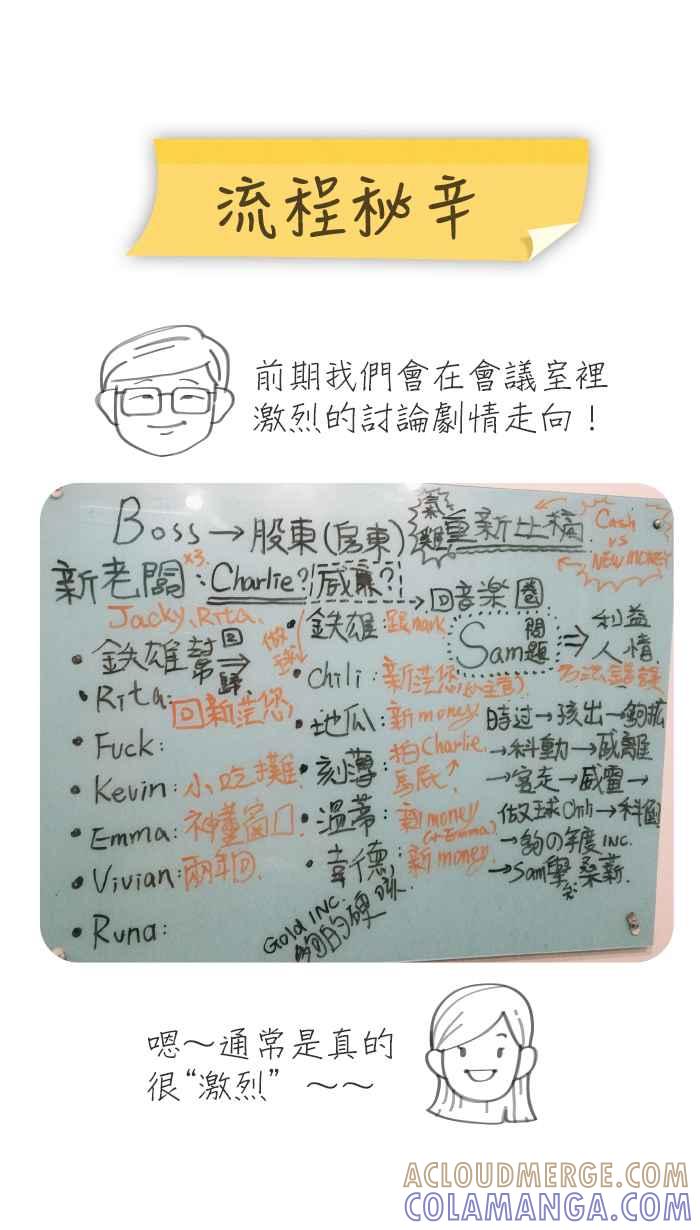 流程秘辛
前期我們會在會議室裡
激烈的討論劇情走向！
Boss→股東(房東)
重新上稿
Cash
vs
NEW MONEY
新老闆:Charlie?/威廉?
x3.
→回音樂圈
Jacky、Rita.
・鉄雄幫
回歸
做球
・鉄雄:跟mark
Sam問題
⇒
利益
人情
・Rita:回新浩您
・Chili:新浩您
・Fuck:
・地瓜:新money
時过→孩出→
→科動→威離
・Kevin:小吃攤
・刻薄:拍Charlie
馬屁↑
→宮走→威雷→
・Emma:神董
・溫蒂:新money
(+Emma)
做球Chili→科
→の年度INC.
・Vivian:兩年
・韋德:新money.
→Sam學
・Runa:
Gold INC.
的硬
嗯～通常是真的
很“激烈” ～～
ACLOUDMERGE.COM
COLAMANGA.COM